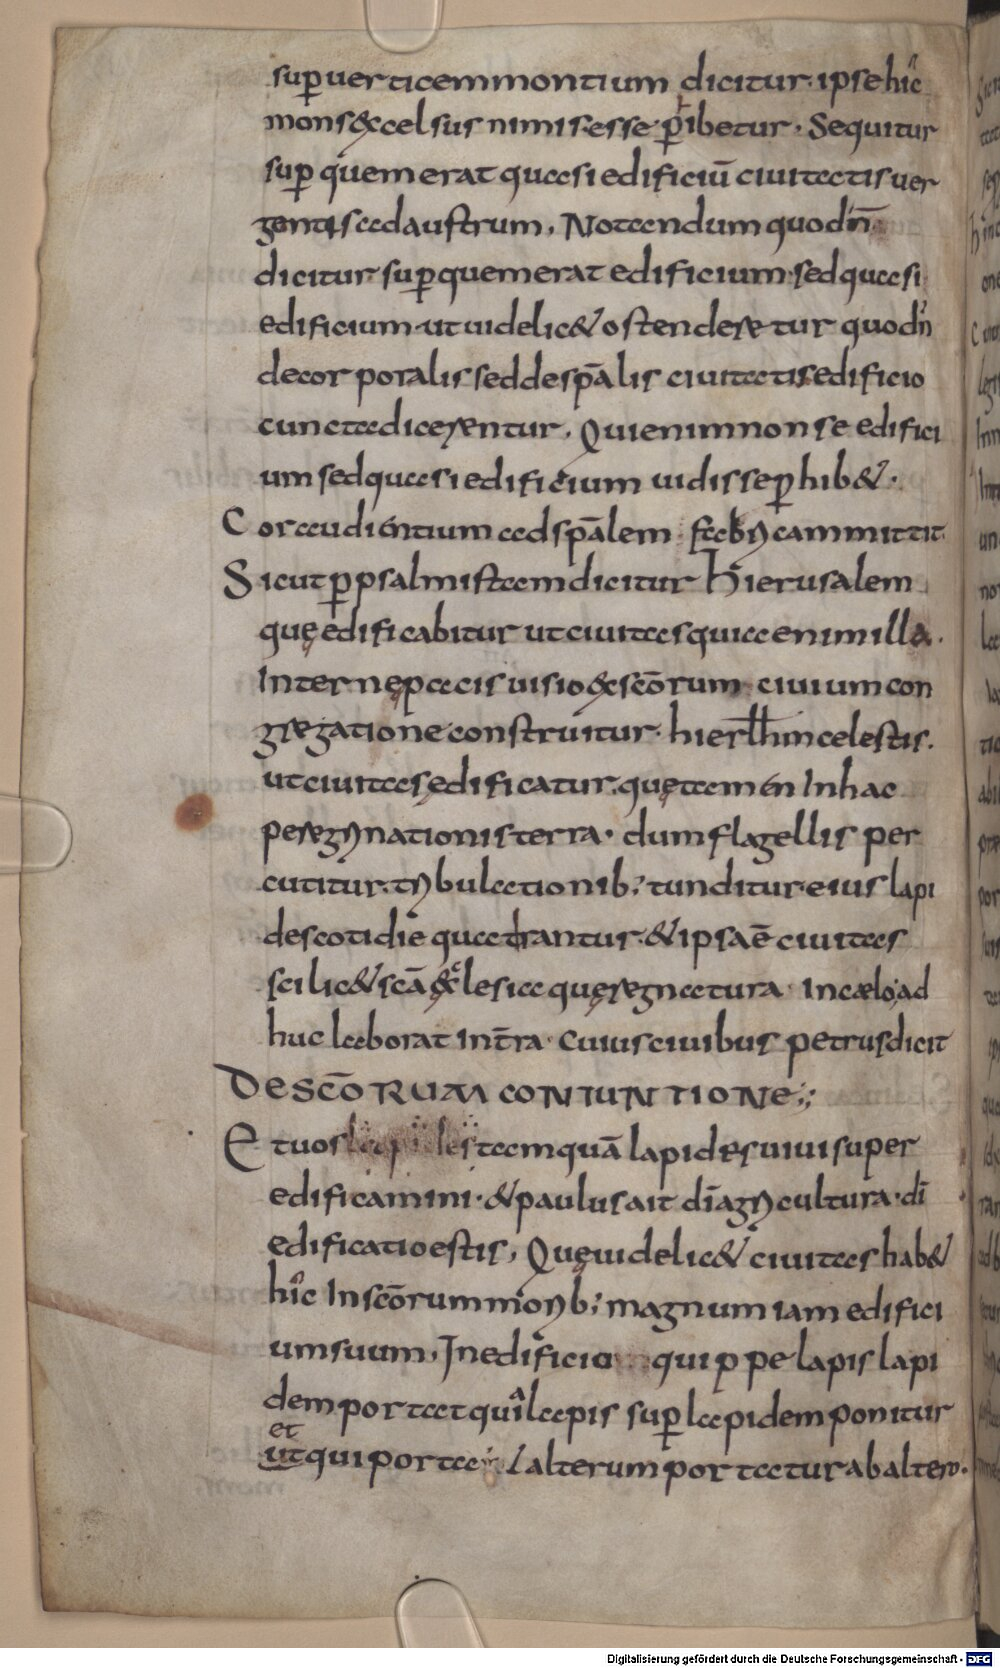 sup uerticem montium dicitur. ipse hic
mons & excelsus nimis esse p̄ibetur. Sequitur
sup quem erat quasi edificiū ciuitatis uer
gentis ad austrum, Notandum quod n̄
dicitur sup quem erat edificium. sed quasi
edificium. ut uidelic& ostenderetur quod n̄
de corporalis sed de spālis ciuitatis edificio
cuncta dicerentur, Qui enim non se edifici
um sed quasi edificium uidisse phib&.
Cor audientium ad spālem fabricam mittit.
Sicut p psalmistam dicitur Hierusalem
quę edificabitur ut ciuitas quia enim illa.
Interne pacis uisio &scōrum ciuium con
gregatione construitur. hierłhm celestis.
ut ciuitas edificatur. quę tamen In hac
peregrinationis terra. dum flagellis per
cutitur. tribulationib; tunditur. eius lapi
des cotidie quadrantur. & ipsa ē ciuitas
scilic& scā ęcclesia quę regnatura In cælo, ad
huc laborat In trā. Cuius ciuibus petrus dicit
DE SCŌRUM CONIUNTIONE;
Et uos lapides tamquā lapides uiui super
edificamini. & paulus ait dī agricultura. dī
edificatio estis, Quę uidelic& ciuitas hab&
hic In scōrum morib; magnum iam edifici
um suum, In edificio quippe lapis lapi
dem portat qui lapis sup lapidem ponitur
et
ut qui porta alterum portatur ab altero.
Digitalisierung gefördert durch die Deutsche Forschungsgemeinschaft - DFG